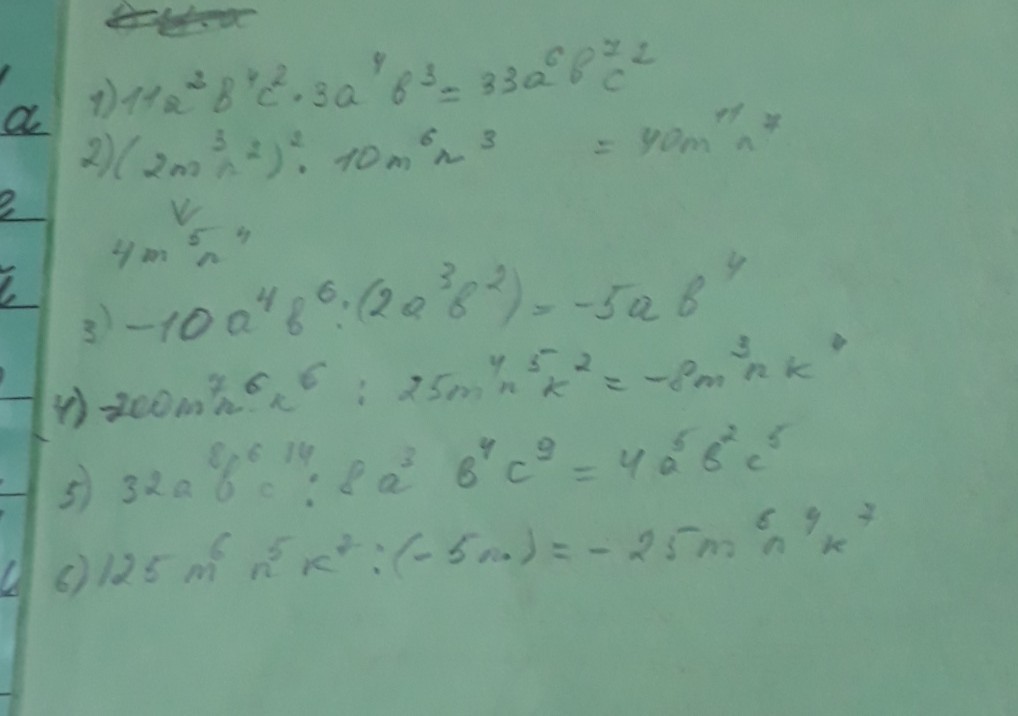 1) 11a²b⁴c² · 3a⁴b³ = 33a⁶b⁷c²
2) (2m³n²)² · 10m⁶n³ = 40m¹¹n⁷
4m⁵n⁴
3) -10a⁴b⁶ : (2a³b²) = -5ab⁴
4) -200m⁷n⁶k⁶ : 25m⁴n⁵k² = -8m³nk⁴
5) 32a⁸b⁶c¹⁴ : 8a³b⁴c⁹ = 4a⁵b²c⁵
6) 125m⁶n⁵k⁷ : (-5n) = -25m⁶n⁴k⁷